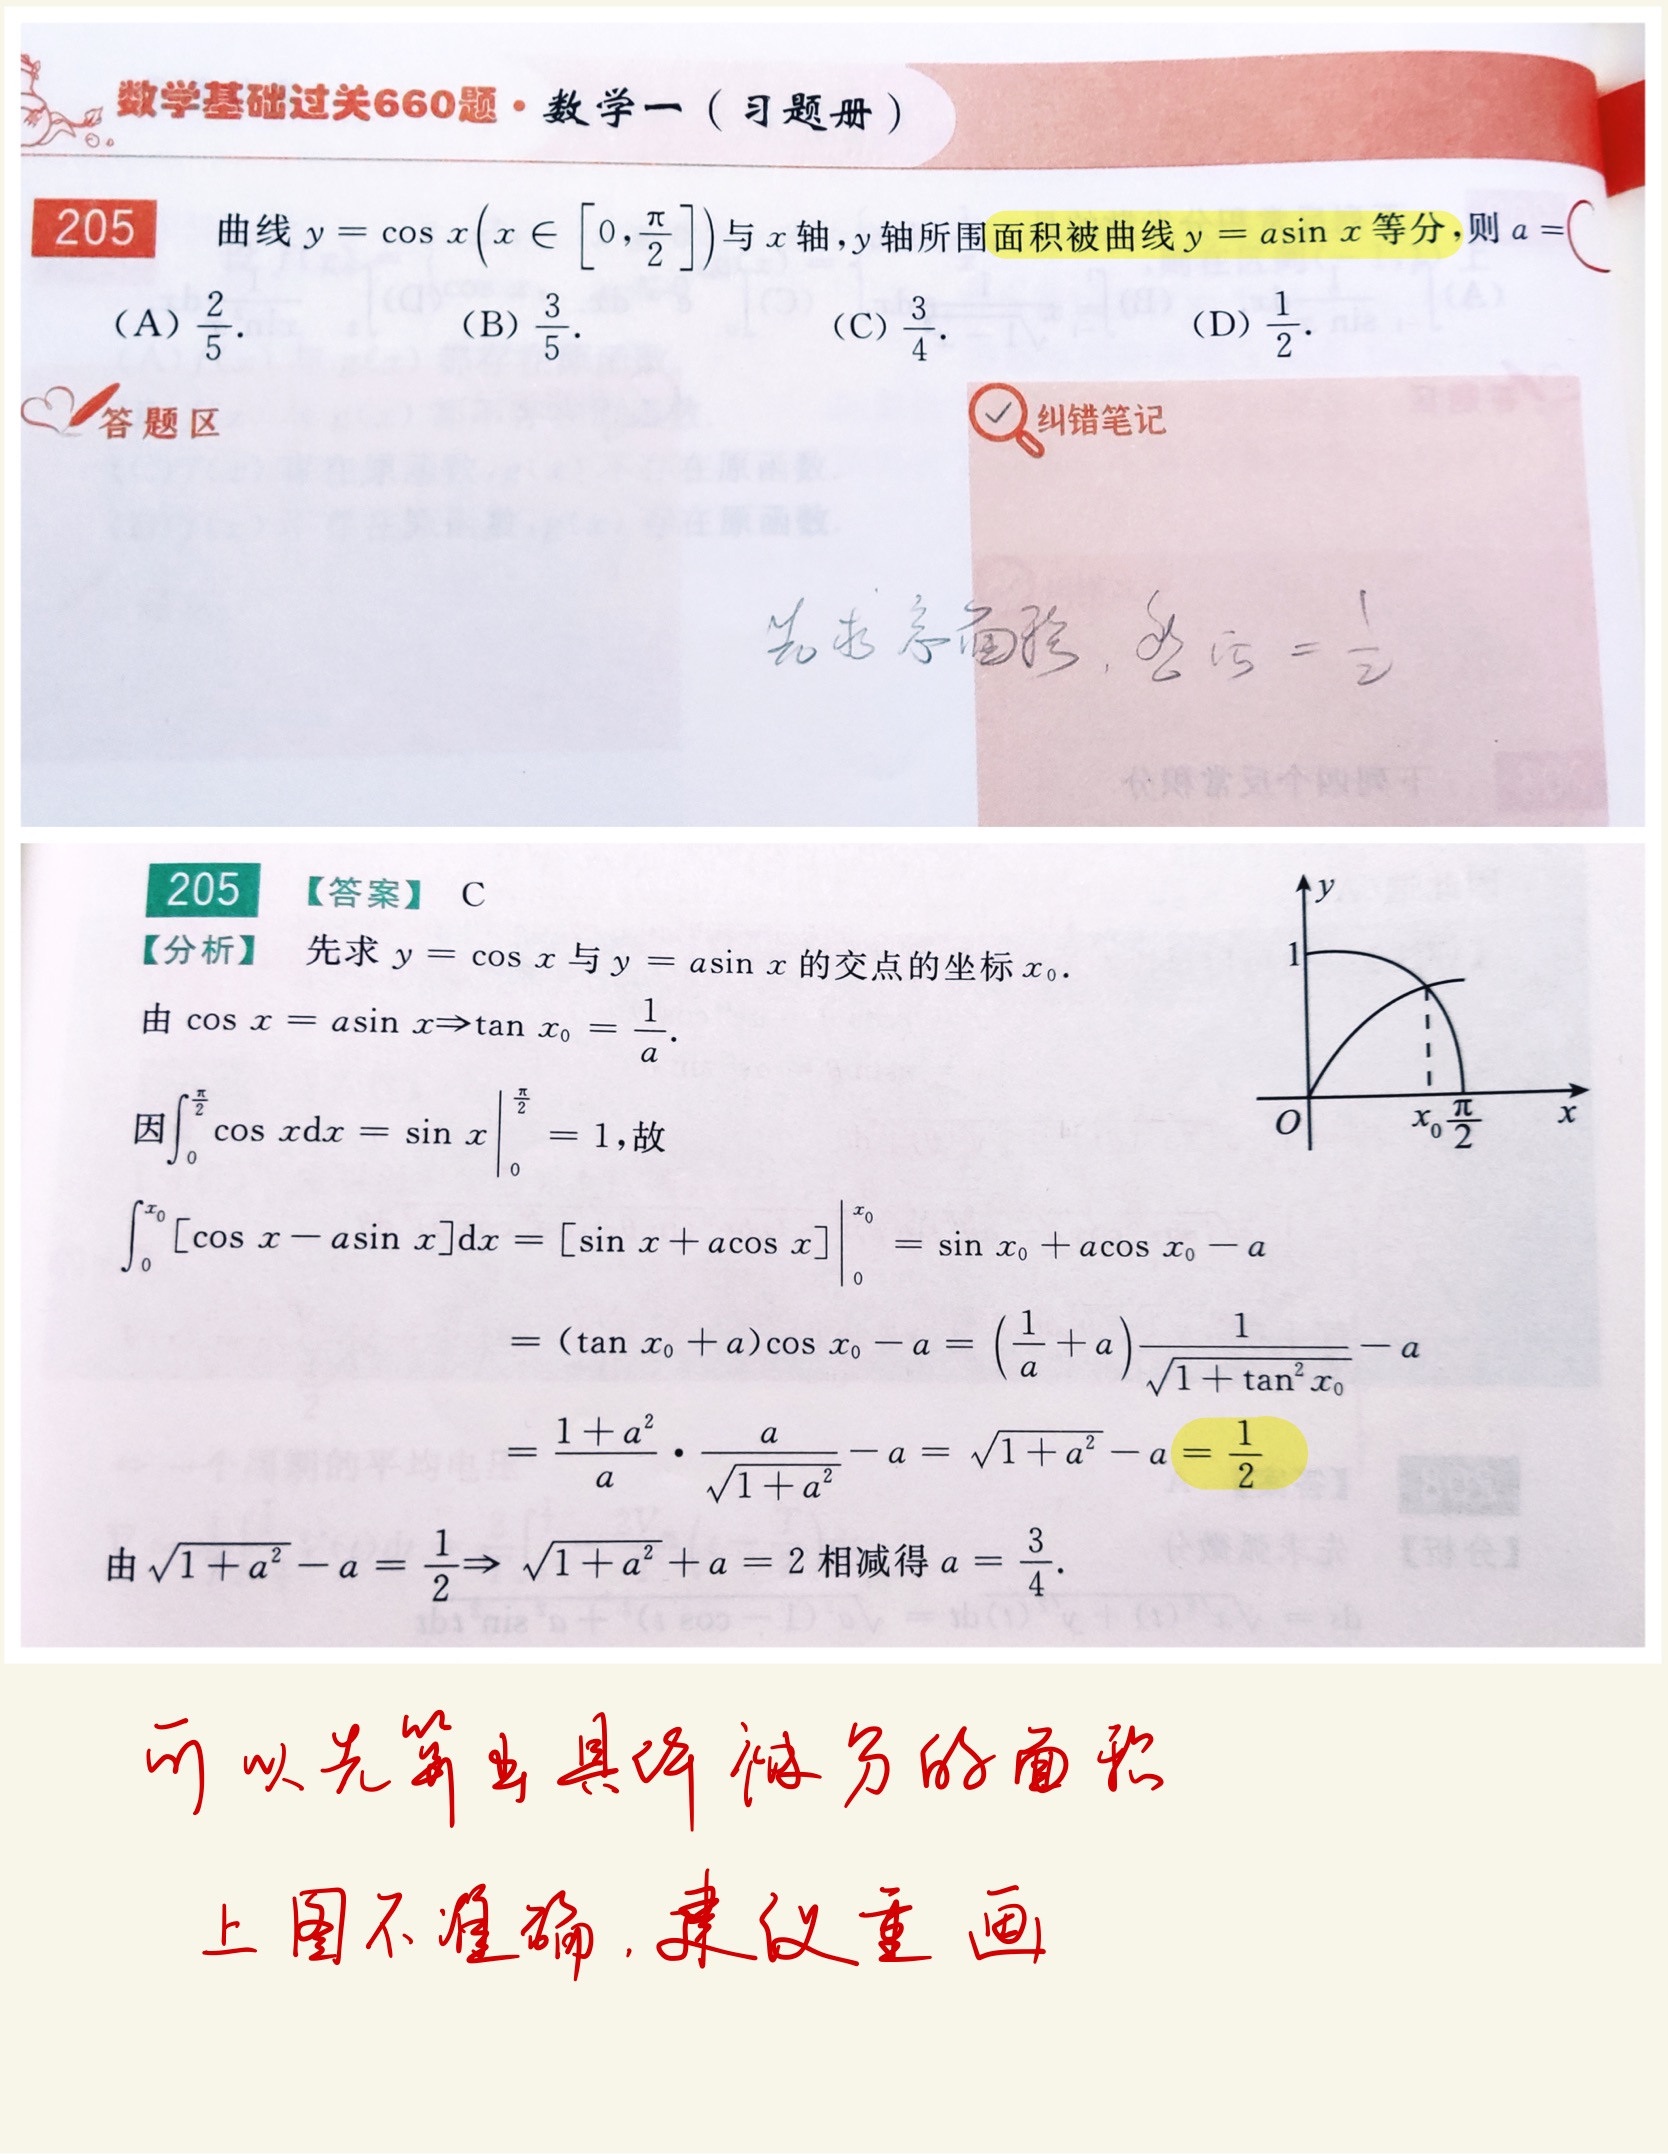 数学基础过关660题·数学一（习题册）
205 曲线 y = cos x(x ∈ [0, π/2]) 与 x 轴, y 轴所围面积被曲线 y = asin x 等分, 则 a =
(A) 2/5. (B) 3/5. (C) 3/4. (D) 1/2.
答题区 纠错笔记
先求 面积, = 1/2
205 【答案】 C
【分析】 先求 y = cos x 与 y = asin x 的交点的坐标 x₀.
由 cos x = asin x⇒tan x₀ = 1/a.
因∫₀^(π/2) cos xdx = sin x|₀^(π/2) = 1, 故
∫₀^(x₀) [cos x − asin x]dx = [sin x + acos x]|₀^(x₀) = sin x₀ + acos x₀ − a
= (tan x₀ + a)cos x₀ − a = (1/a + a) 1/√(1 + tan² x₀) − a
= (1 + a²)/a · a/√(1 + a²) − a = √(1 + a²) − a = 1/2
由 √(1 + a²) − a = 1/2 ⇒ √(1 + a²) + a = 2 相减得 a = 3/4.
y
1
O x₀ π/2 x
可以先算出具体被分的面积
上图不准确, 建议重画